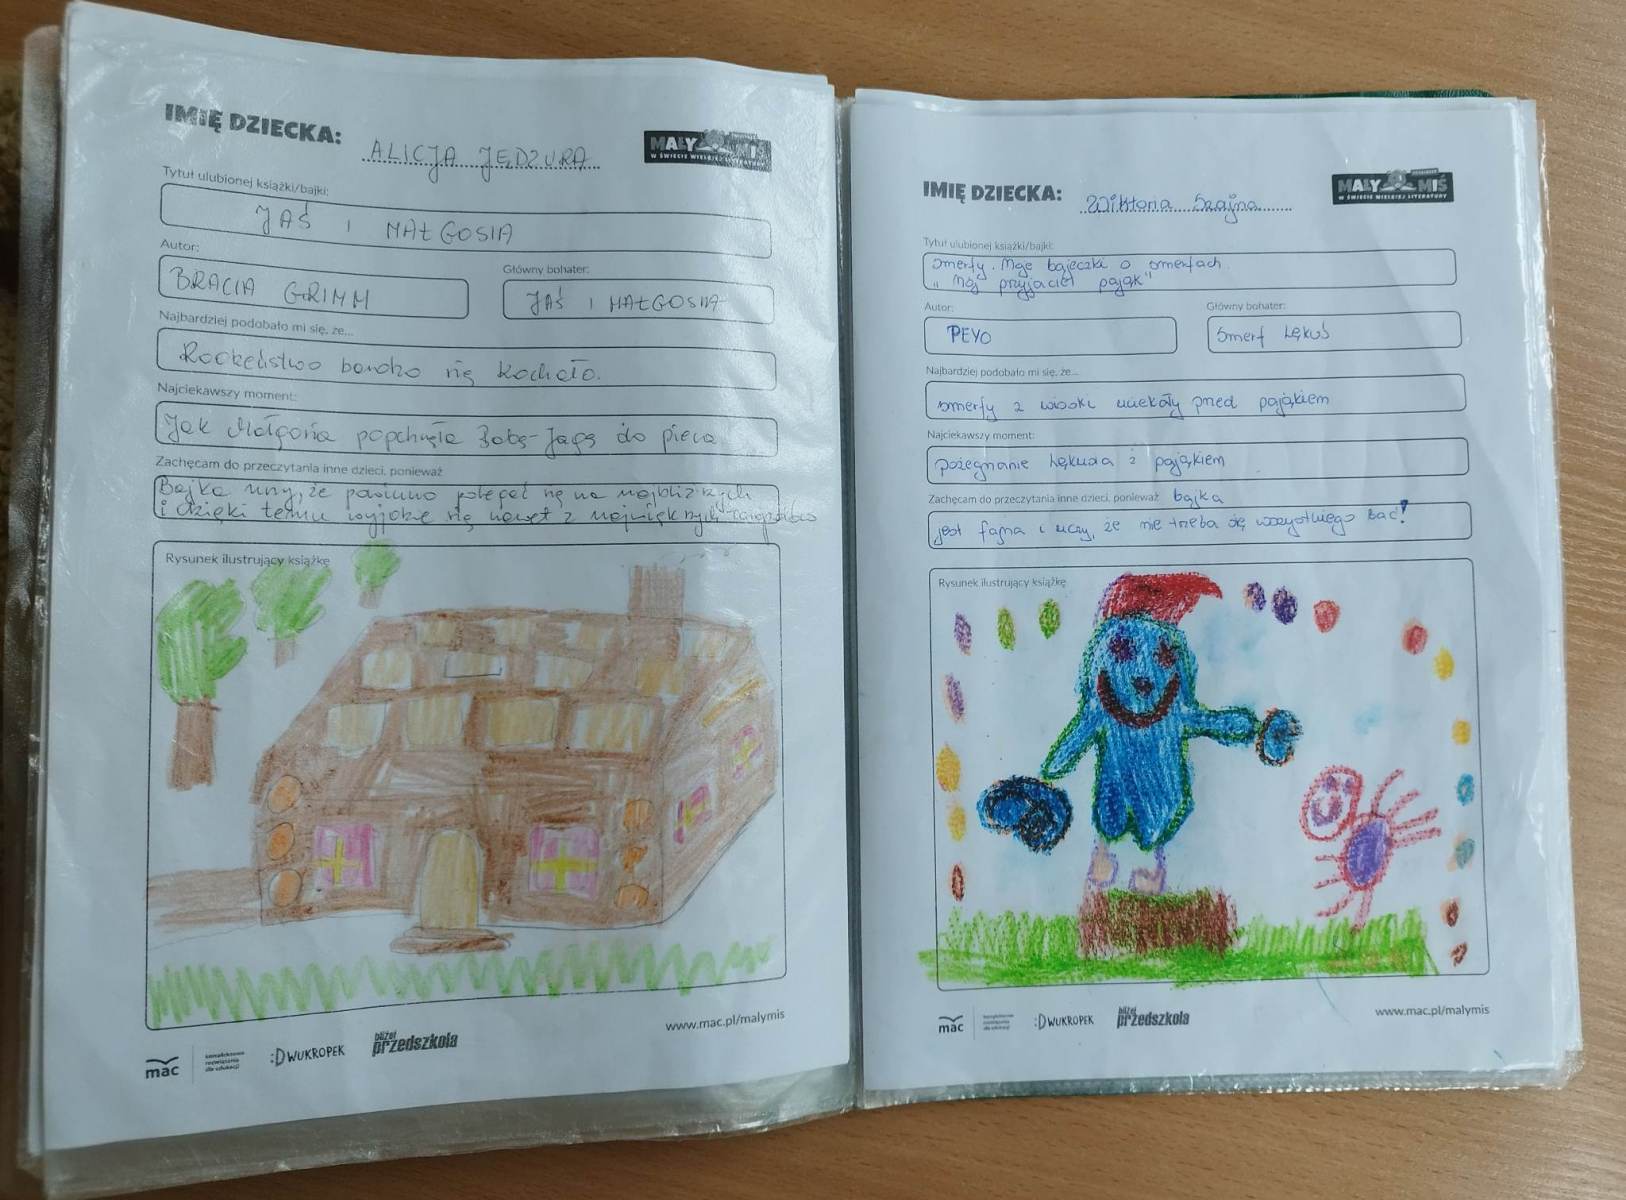 IMIĘ DZIECKA: ALICJA JĘDZURA
MAŁY MIŚ
W ŚWIECIE WIELKIEJ LITERATURY
Tytuł ulubionej książki/bajki:
JAŚ I MAŁGOSIA
Autor:
BRACIA GRIMM
Główny bohater:
JAŚ I MAŁGOSIA
Najbardziej podobało mi się, że...
Rodzeństwo bardzo się kochało.
Najciekawszy moment:
Jak Małgosia popchnęła Babę-Jagę do pieca
Zachęcam do przeczytania inne dzieci, ponieważ
Bajka uczy, że powinno polegać się na najbliższych
i dzięki temu wyjdzie się nawet z największych
Rysunek ilustrujący książkę
mac
kompleksowe
rozwiązania
dla edukacji
:DWUKROPEK
bliżej
przedszkola
www.mac.pl/malymis
IMIĘ DZIECKA: Wiktoria Szajna
MAŁY MIŚ
W ŚWIECIE WIELKIEJ LITERATURY
Tytuł ulubionej książki/bajki:
Smerfy. Moje bajeczki o smerfach
"Mój przyjaciel pająk"
Autor:
PEYO
Główny bohater:
Smerf Lękuś
Najbardziej podobało mi się, że...
smerfy z wioski uciekały przed pająkiem
Najciekawszy moment:
pożegnanie Lękusia z pająkiem
Zachęcam do przeczytania inne dzieci, ponieważ bajka
jest fajna i uczy, że nie trzeba się wszystkiego bać!
Rysunek ilustrujący książkę
mac
kompleksowe
rozwiązania
dla edukacji
:DWUKROPEK
bliżej
przedszkola
www.mac.pl/malymis